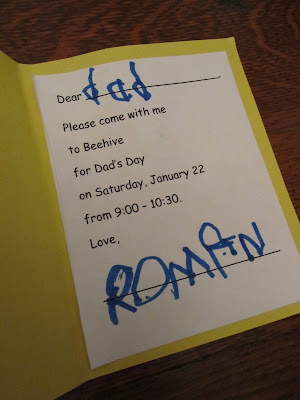 Dear dad.
Please come with me
to Beehive
for Dad's Day
on Saturday, January 22
from 9:00 - 10:30.
Love,
ROMAN